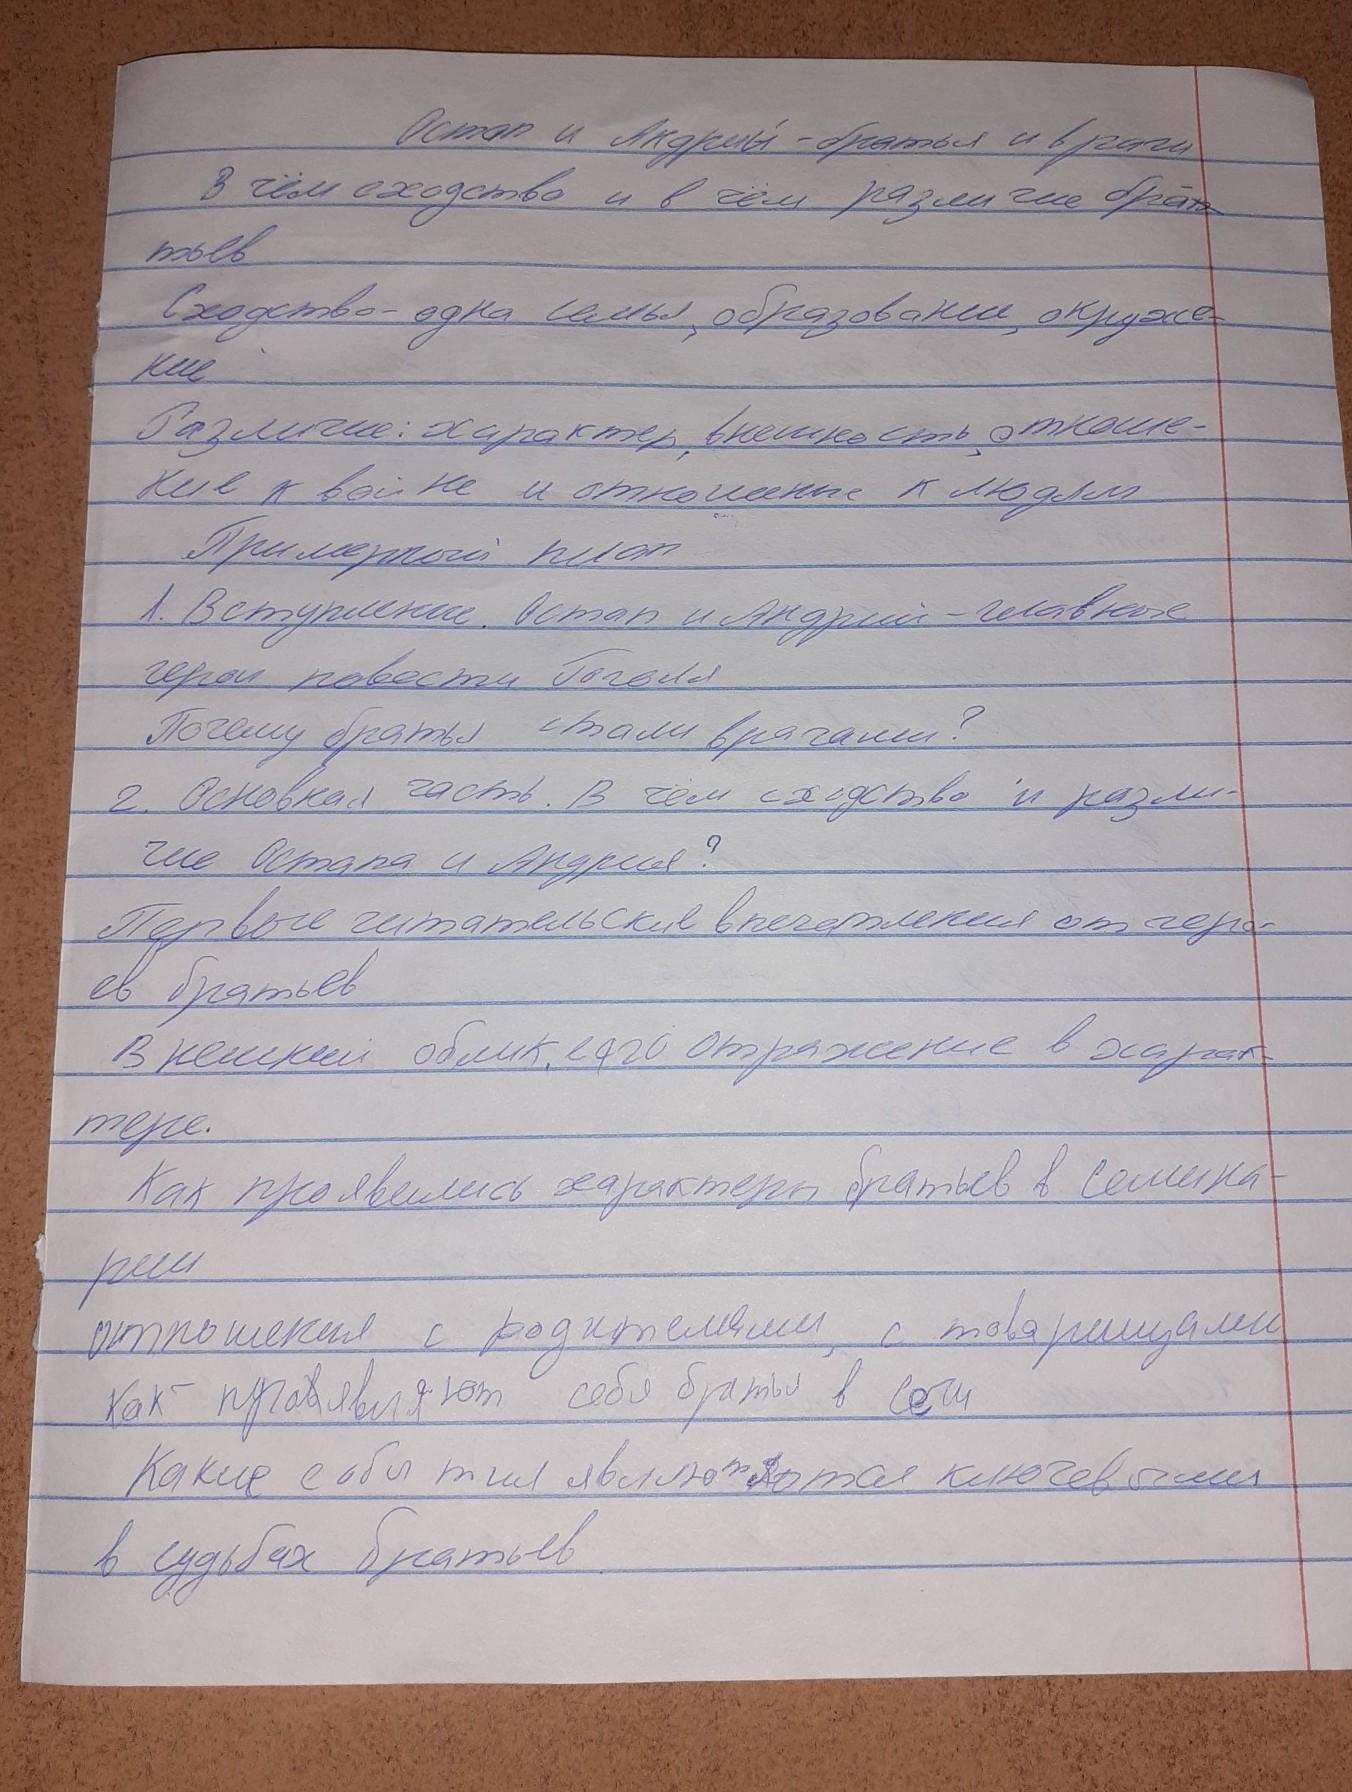 Остап и Андрий - братья и враги
В чём сходство и в чём различие бра
тьев
Сходство - одна семья, образование, окруже-
ние
Различие: характер, внешность, отноше-
ние к войне и отношение к людям
Примерный план
1. Вступление. Остап и Андрий - главные
герои повести Гоголя
Почему братья стали врагами?
2. Основная часть. В чём сходство и разли-
чие Остапа и Андрия?
Первые читательские впечатления от геро-
ев братьев
Внешний облик, его отражение в харак-
тере.
Как проявились характеры братьев в семина-
рии
отношения с родителями, с товарищами
Как проявляют себя братья в сечи
Какие события являются ключевыми
в судьбах братьев